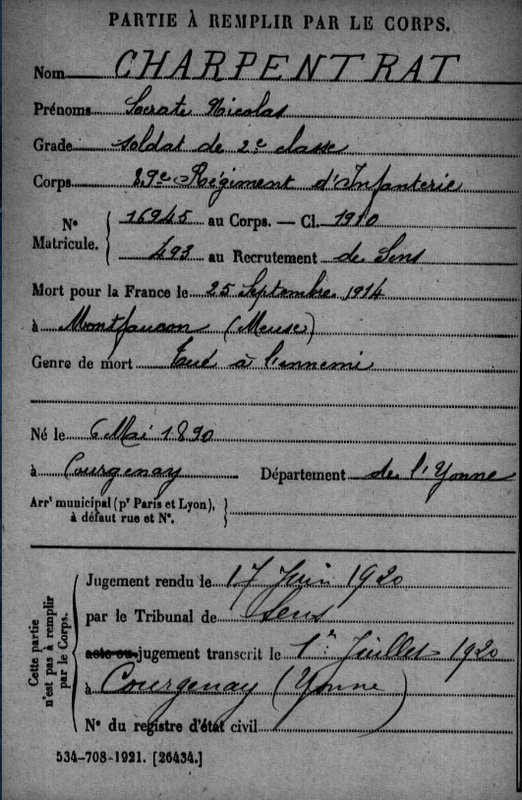 PARTIE À REMPLIR PAR LE CORPS.
Nom CHARPENTRAT
Prénoms Socrate Nicolas
Grade soldat de 2e classe
Corps 89e Régiment d'Infanterie
N° Matricule. { 16945 au Corps. — Cl. 1910
493 au Recrutement de Sens
Mort pour la France le 25 Septembre 1914
à Montfaucon (Meuse)
Genre de mort Tué à l'ennemi
Né le 6 Mai 1890
à Courgenay Département de l'Yonne
Arrt municipal (pr Paris et Lyon), }
à défaut rue et N°.
Cette partie n'est pas à remplir par le Corps.
Jugement rendu le 17 Juin 1920
par le Tribunal de Sens
acte ou jugement transcrit le 1er Juillet 1920
à Courgenay (Yonne)
N° du registre d'état civil
534-708-1921. [26434.]